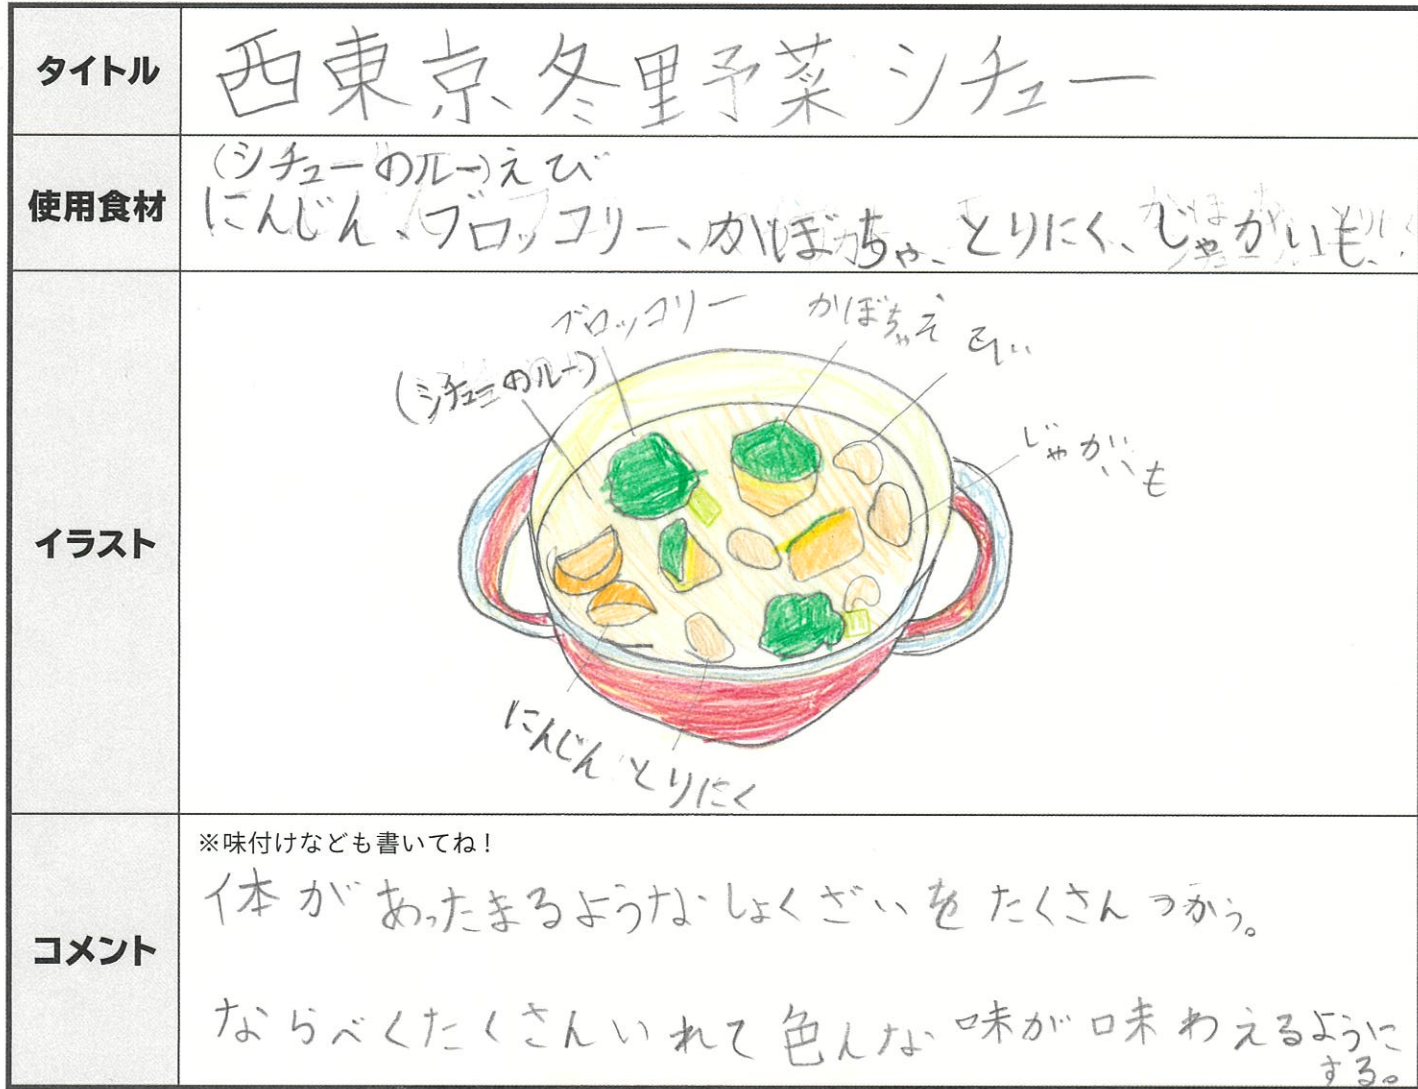 タイトル
西東京冬里予菜シチュー
使用食材
(シチューのルー)えび
にんじん、ブロッコリー、かぼちゃ、とりにく、じゃがいも、
イラスト
ブロッコリー
かぼちゃ
(シチューのルー)
じゃがいも
にんじん
とりにく
コメント
※味付けなども書いてね!
体があったまるようなしょくざいをたくさんつかう。
ならべくたくさんいれて色んな味が味わえるように
する。